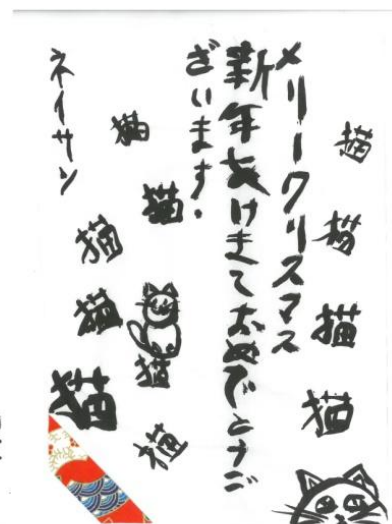 猫
猫
猫
猫
メリークリスマス
新年あけましておめでとうご
ざいます.
猫
猫
猫
猫
猫
猫
猫
ネイサン